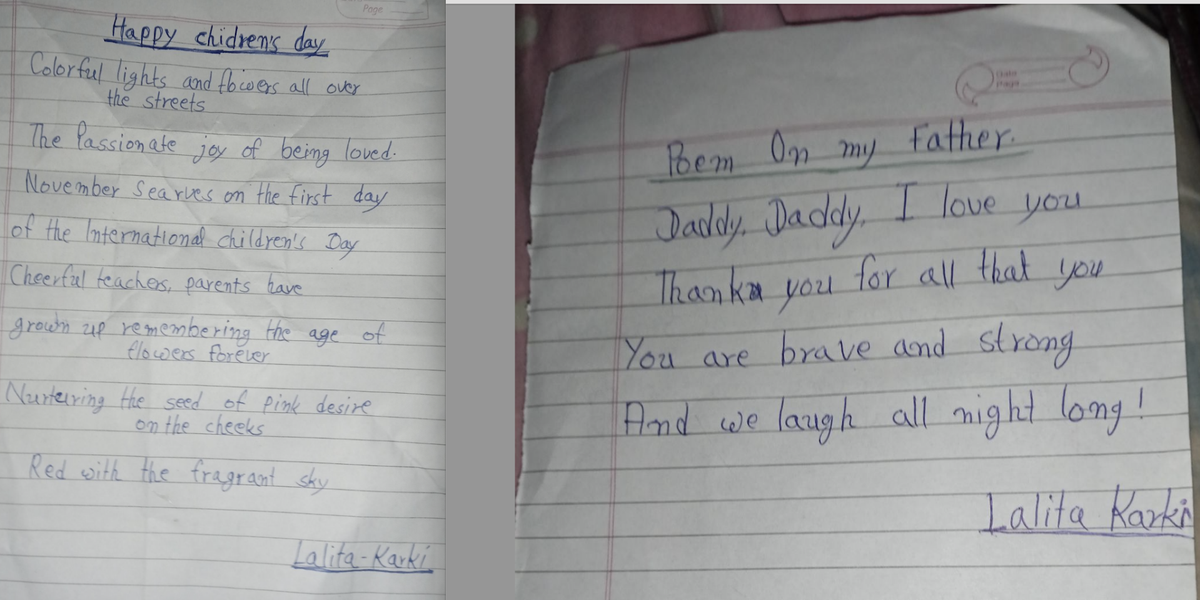 Page
Happy chidren's day
Colorful lights and flowers all over
the streets
The Passionate joy of being loved.
November Searves on the first day
of the International children's Day
Cheerful teachers, parents have
grown up remembering the age of
flowers forever
Nurturing the seed of Pink desire
on the cheeks
Red with the fragrant sky
Lalita-Karki
Poem On my Father.
Daddy, Daddy, I love you
Thank you for all that you
You are brave and strong
And we laugh all night long!
Lalita Karki